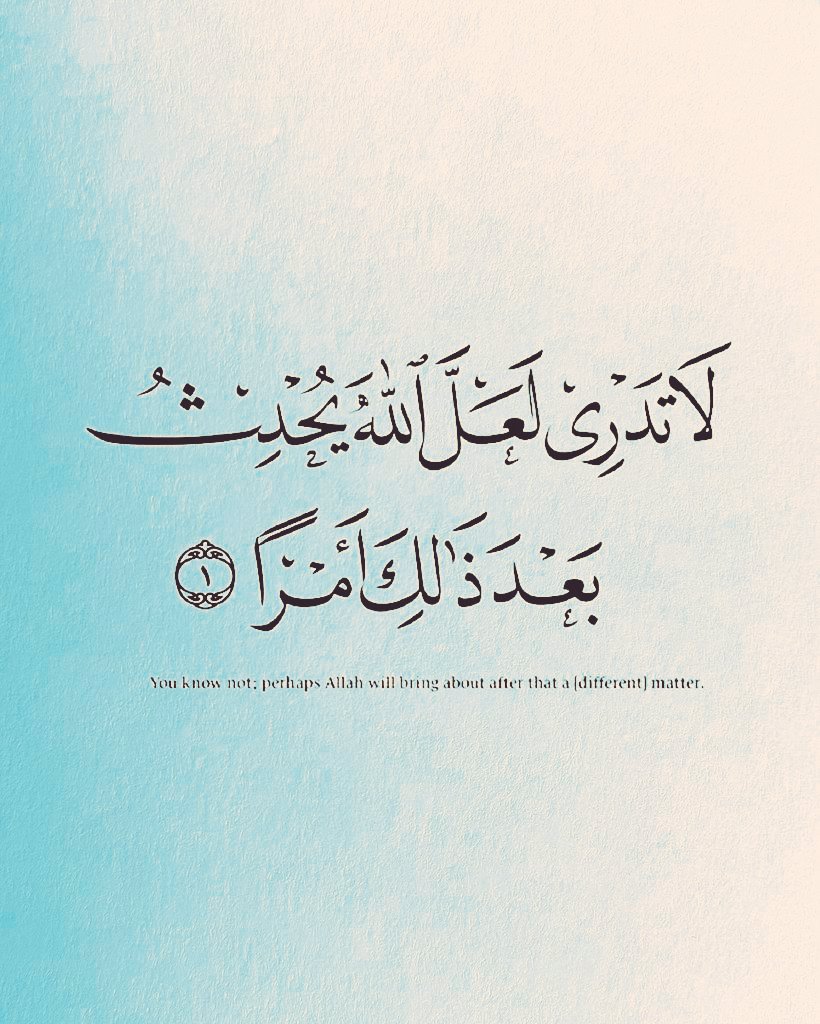 لَا تَدْرِى لَعَلَّ ٱللَّهَ يُحْدِثُ
بَعْدَ ذَٰلِكَ أَمْرًا ١
You know not; perhaps Allah will bring about after that a [different] matter.